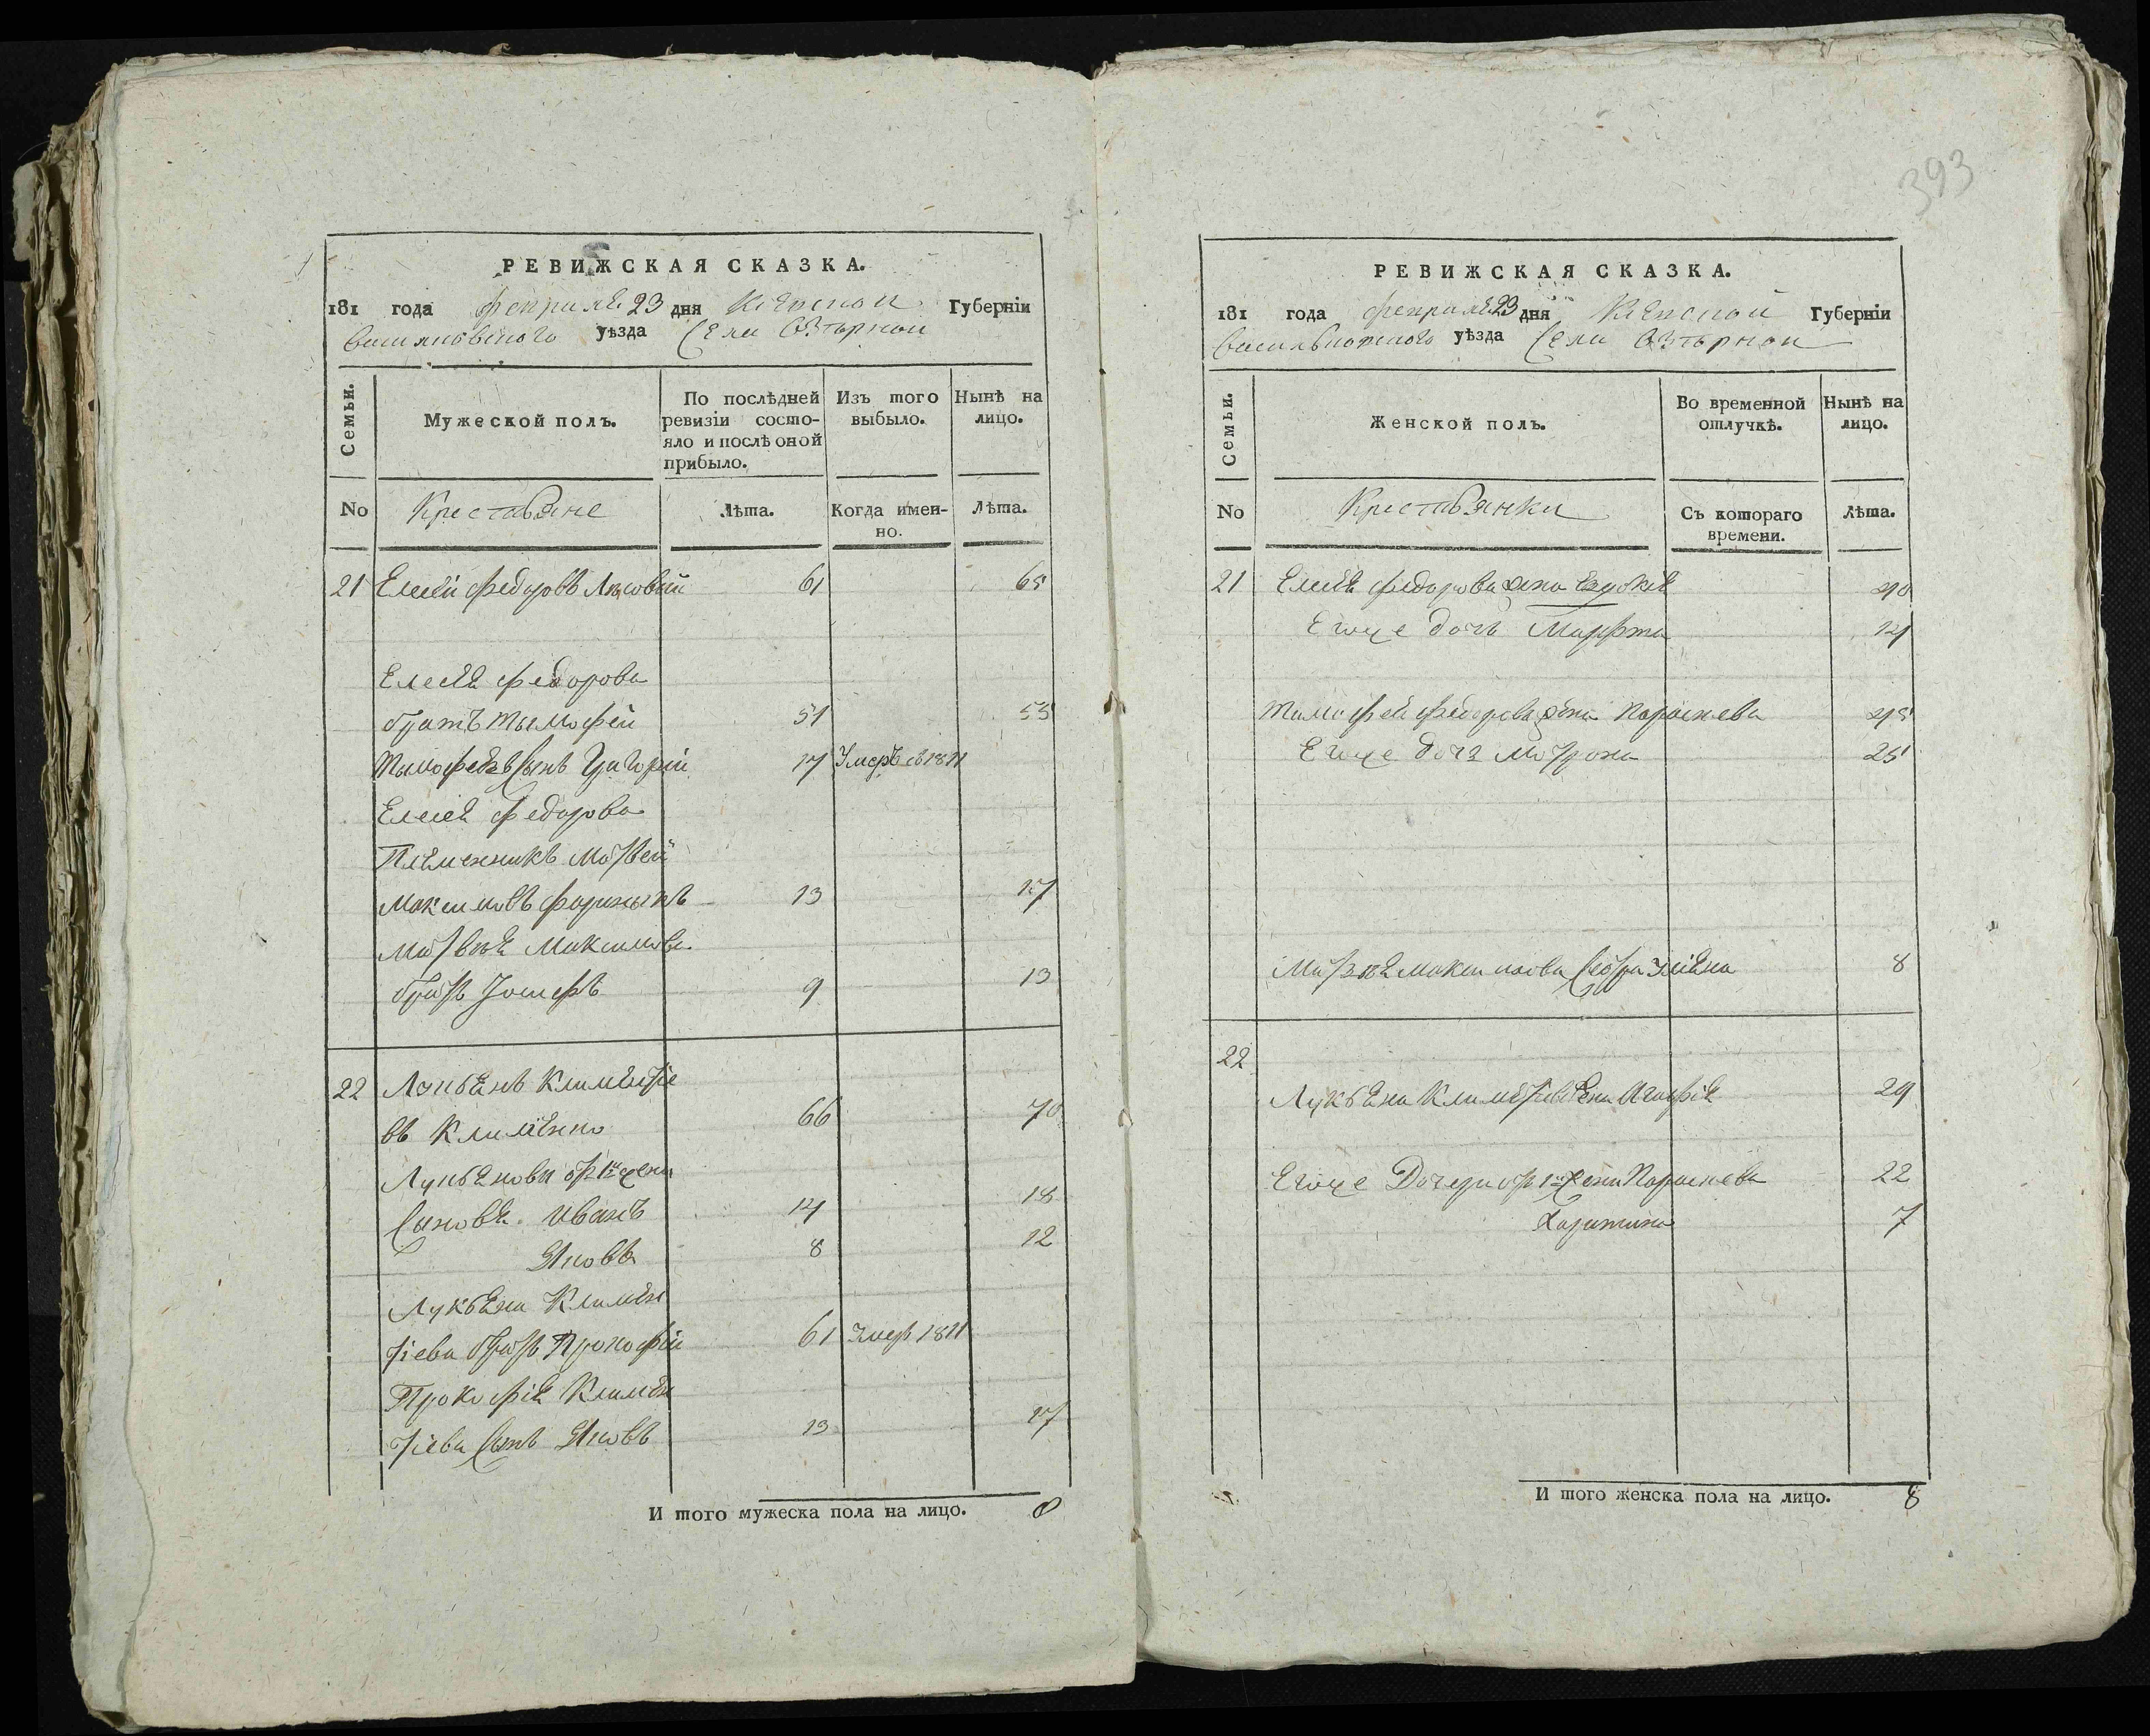 393
РЕВИЖСКАЯ СКАЗКА.
181 года февраля 23 дня Кіевской Губерніи
Васильковского уѣзда Села Озѣрной
Семьи.
Мужеской полъ.
По послѣдней ревизіи состояло и послѣ оной прибыло.
Изъ того выбыло.
Нынѣ на лицо.
No Крестьяне Лѣта. Когда именно. Лѣта.
21 Елисей Федоровъ 61 65
Елисея Федорова
братъ Тымофей 51 55
Тымофеевъ сынъ Григорій 14 Умеръ въ 1811
Елисея Федорова
Племенникъ Матвей
Максимовъ 13 17
Матвея Максимова
братъ Іосифъ 9 13
22 Лукьянъ Климентіе
въ Клименко 66 70
Лукьяновы отъ 1й жены
Сыновья. Иванъ 14 18
Яковъ 8 12
Лукьяна Климен
тіева братъ Прокофій 61 Умеръ 1811
Прокофія Климен
тіева сынъ Яковъ 13 17
И того мужеска пола на лицо. 8
РЕВИЖСКАЯ СКАЗКА.
181 года февраля 23 дня Кіевской Губерніи
Васильковского уѣзда Села Озѣрной
Семьи.
Женской полъ.
Во временной отлучкѣ.
Нынѣ на лицо.
No Крестьянки Съ котораго времени. Лѣта.
21 Елисея Федорова жена Евдокія 40
Егоже дочь Марфа 14
Тимофея Федорова жена Параскева 45
Егоже дочь Мотрона 25
Матвея Максимова сестра Уліяна 8
22
Лукьяна Климентіева жена Агафія 29
Егоже Дочери отъ 1й жены Параскева 22
Харитина 7
И того женска пола на лицо. 8